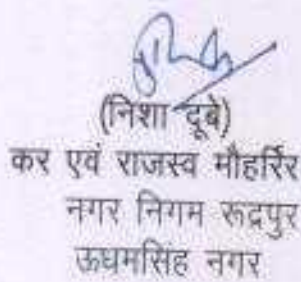 (निशा दूबे)
कर एवं राजस्व मौहर्रिर
नगर निगम रूद्रपुर
ऊधमसिंह नगर